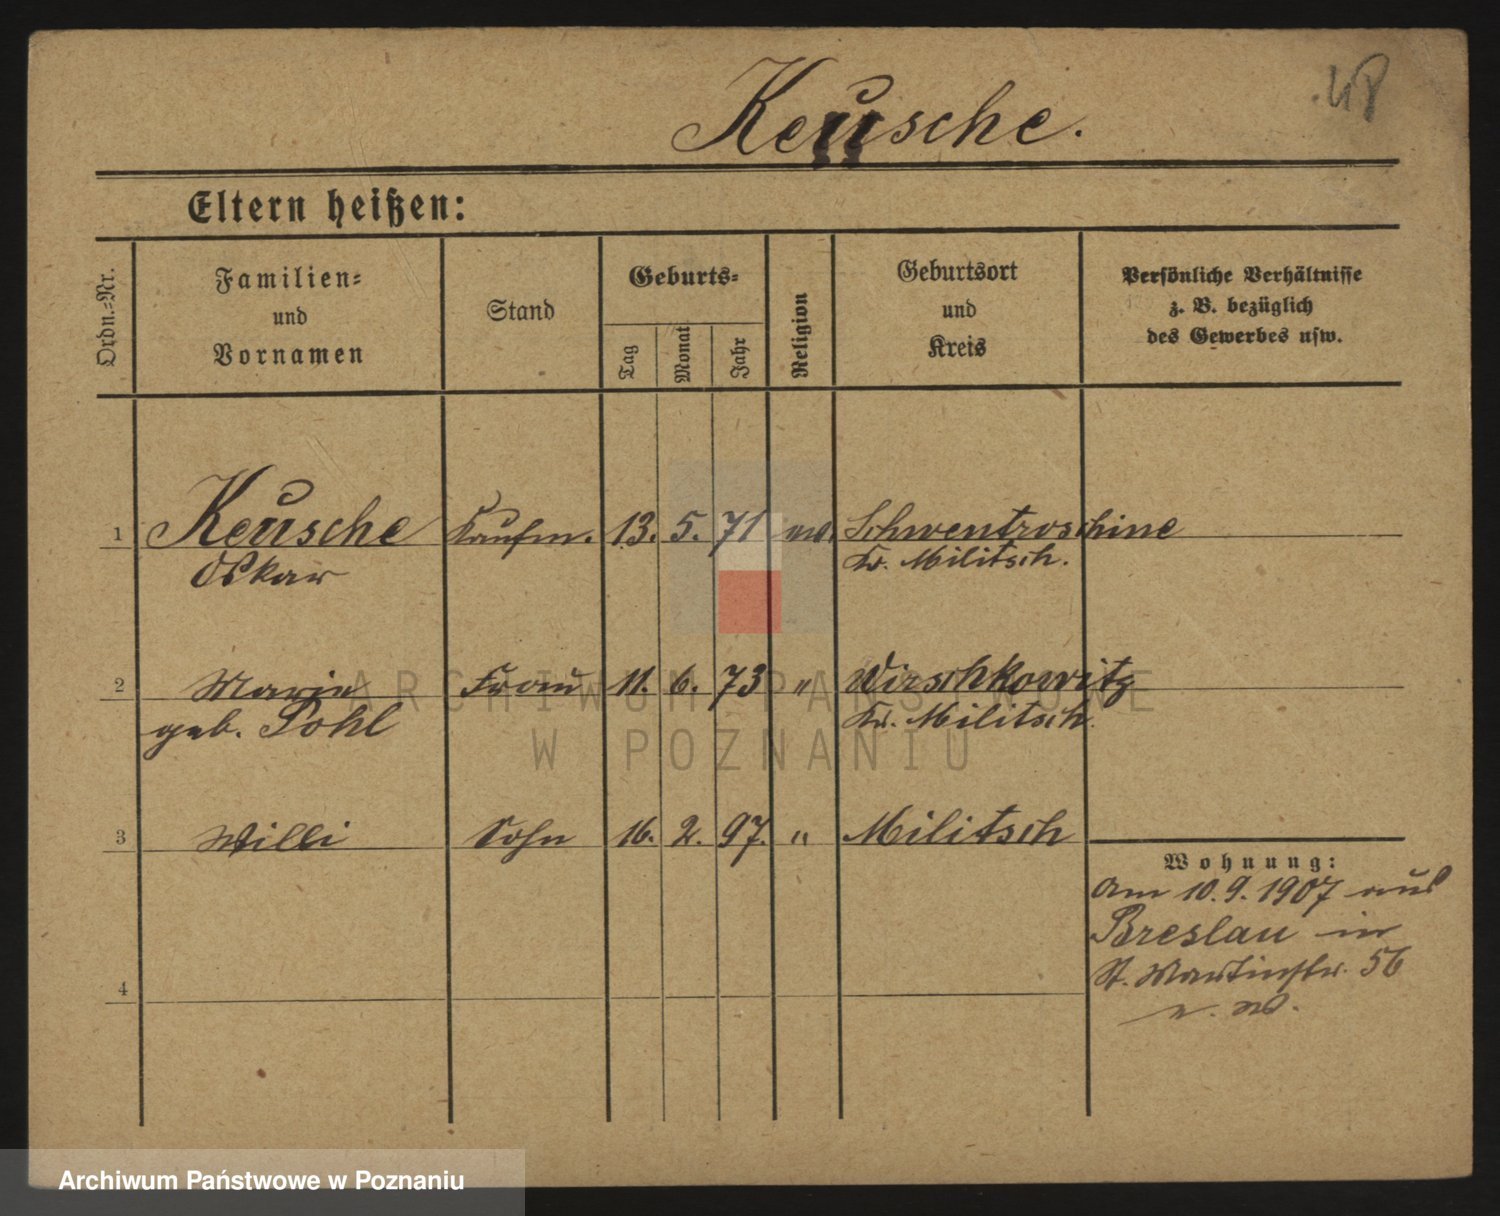 Keusche.
48
Eltern heißen:
Ordn.-Nr.
Familien-
und
Vornamen
Stand
Geburts-
Tag
Monat
Jahr
Religion
Geburtsort
und
Kreis
Persönliche Verhältnisse
z. B. bezüglich
des Gewerbes usw.
1 Keusche Kaufm. 13. 5. 71 ev. Schwentroschine
Oskar Kr. Militsch.
2 Marie Frau 11. 6. 73 " Wirschkowitz
geb. Pohl Kr. Militsch.
3 Willi Sohn 16. 2. 97. " Militsch
Wohnung:
Am 10.9.1907 aus
Breslau in
St. Martinstr. 56
4
ARCHIWUM PAŃSTWOWE
W POZNANIU
Archiwum Państwowe w Poznaniu